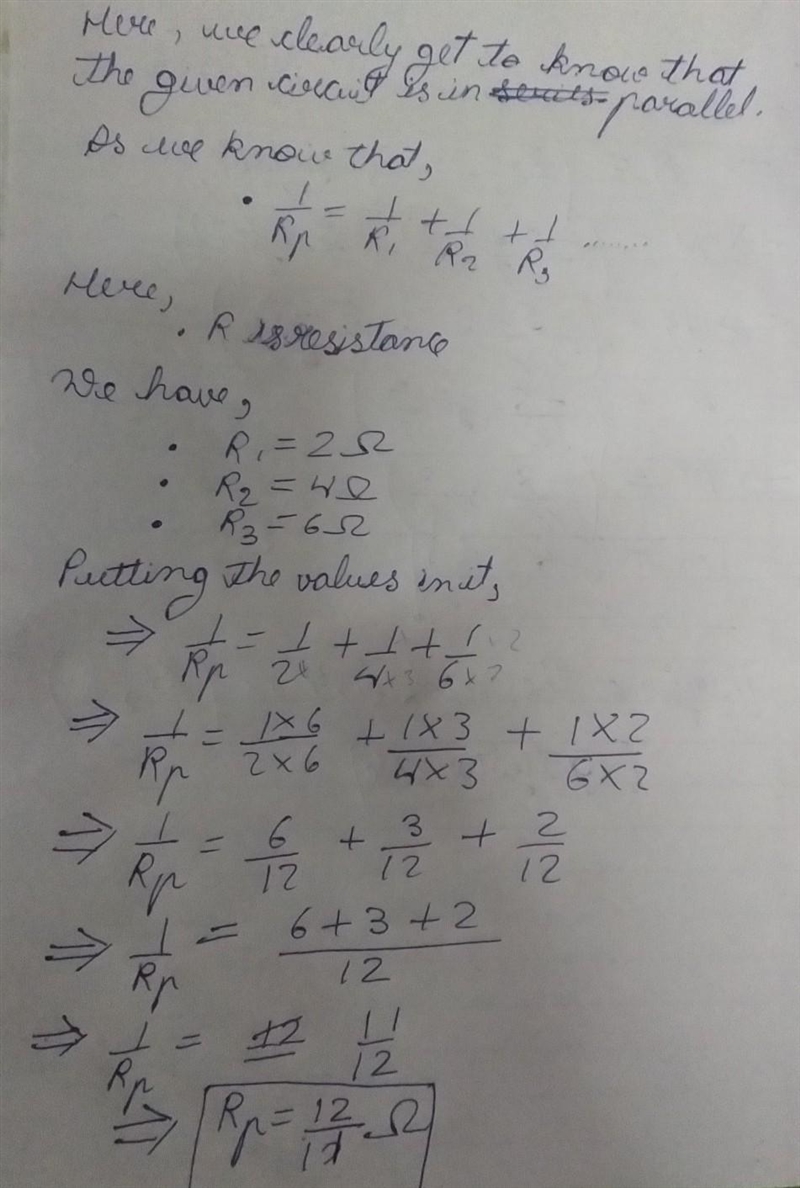 Here, we clearly get to know that
the given circuit is in series parallel.
As we know that,
• 1/Rp = 1/R1 + 1/R2 + 1/R3 .......
Here,
• R is resistance
We have,
• R1 = 2Ω
• R2 = 4Ω
• R3 = 6Ω
Putting the values in it,
⇒ 1/Rp = 1/2 + 1/4×3 + 1/6×2
⇒ 1/Rp = 1×6/2×6 + 1×3/4×3 + 1×2/6×2
⇒ 1/Rp = 6/12 + 3/12 + 2/12
⇒ 1/Rp = 6+3+2/12
⇒ 1/Rp = 12 11/12
⇒ Rp = 12/11 Ω